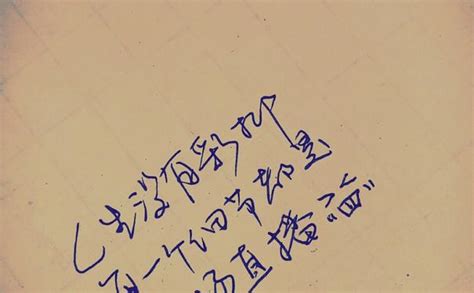 人生没有彩排
每一个细节都是
现场直播"活"